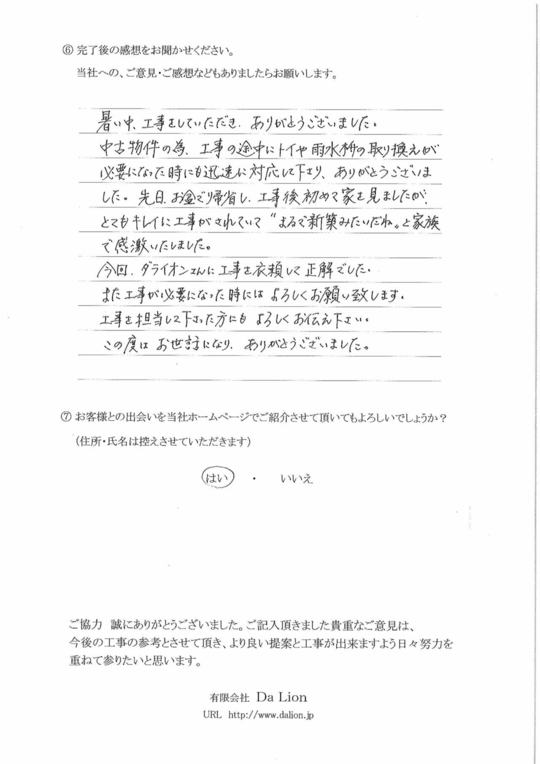 ⑥ 完了後の感想をお聞かせください。
当社への、ご意見・ご感想などもありましたらお願いします。
暑い中、工事をしていただき、ありがとうございました。
中古物件の為、工事の途中にトイヤ雨水桝の取り換えが
必要になった時にも迅速に対応して下さり、ありがとうございま
した。先日、お盆で帰省し、工事後初めて家を見ましたが、
とてもキレイに工事がされていて"まるで新築みたいだね。と家族
で感激いたしました。
今回、ダライオンさんに工事を依頼して正解でした。
また工事が必要になった時には よろしくお願い致します。
工事を担当して下さった方にも よろしくお伝え下さい。
この度は お世話になり、ありがとうございました。
⑦ お客様との出会いを当社ホームページでご紹介させて頂いてもよろしいでしょうか?
(住所・氏名は控えさせていただきます)
はい ・ いいえ
ご協力 誠にありがとうございました。ご記入頂きました貴重なご意見は、
今後の工事の参考とさせて頂き、より良い提案と工事が出来ますよう日々努力を
重ねて参りたいと思います。
有限会社 Da Lion
URL http://www.dalion.jp